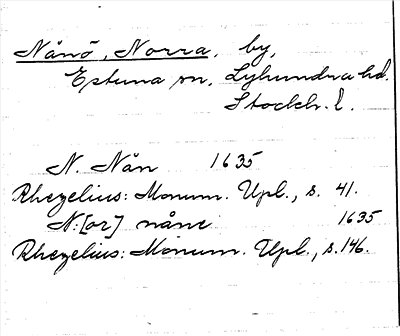 Nånö, Norra, by,
Estuna sn, Lyhundra hd.
Stockh. l.
N. Nån 1635
Rhezelius: Monum. Upl., s. 41.
N:[or] nåne 1635
Rhezelius: Monum. Upl., s. 146.